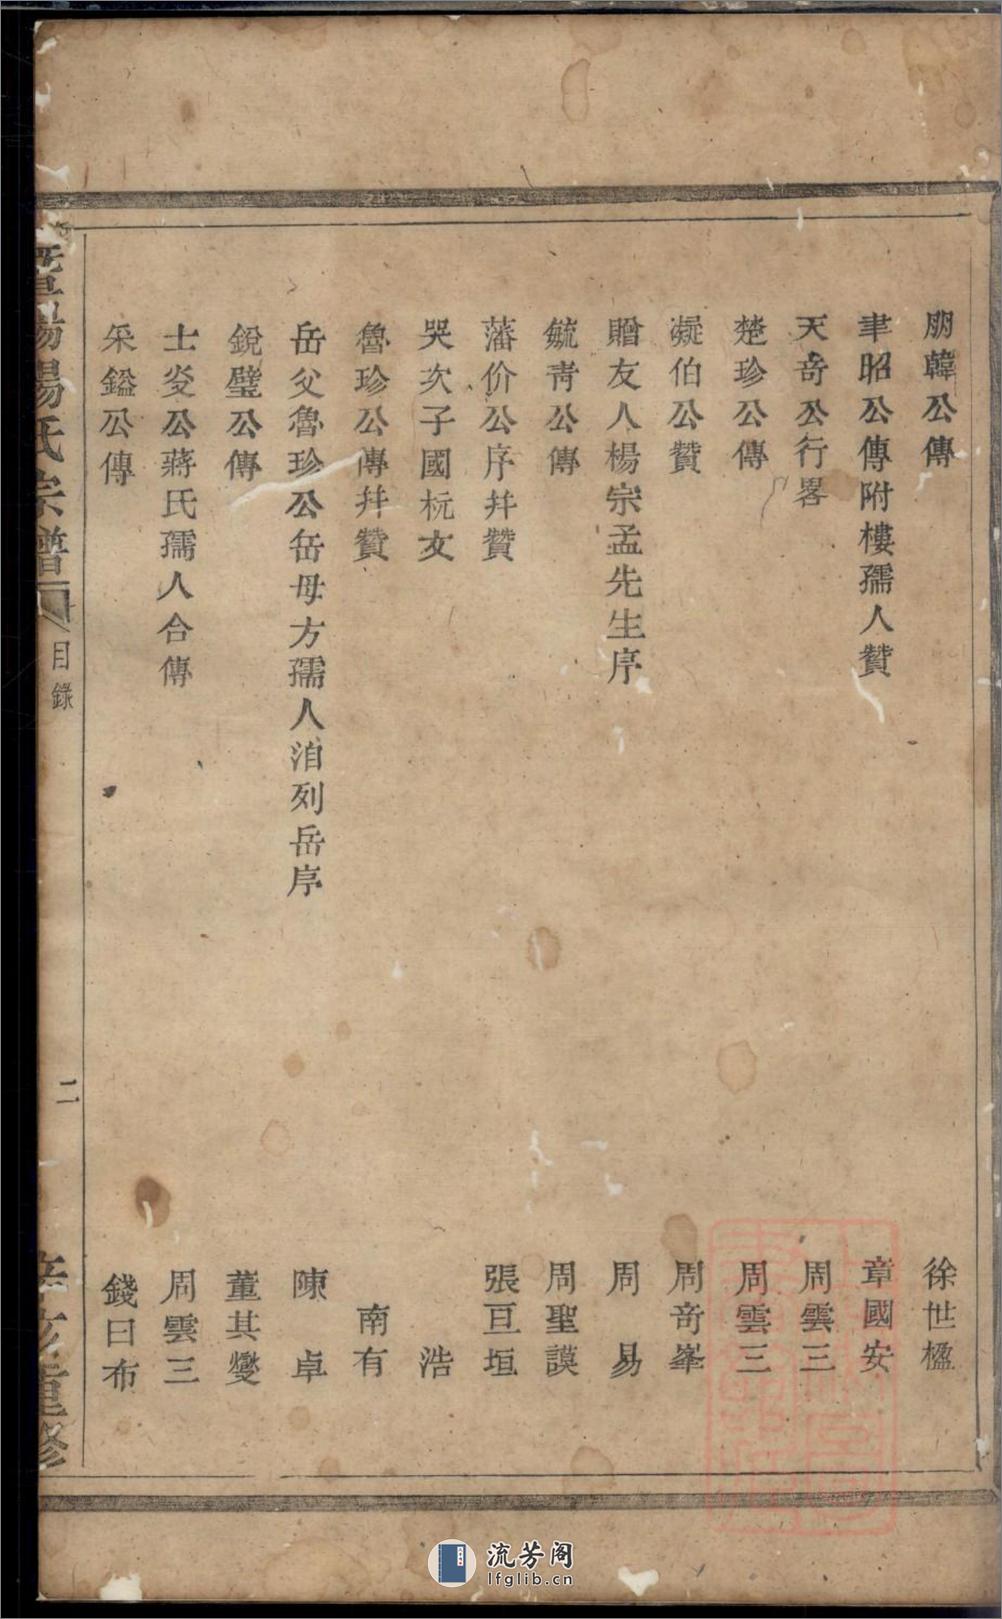 朋韓公傳 徐世楹
聿昭公傳附樓孺人贊 章國安
天奇公行畧 周雲三
楚珍公傳 周雲三
凝伯公贊 周奇峯
贈友人楊宗孟先生序 周易
毓靑公傳 周聖謨
藩价公序幷贊 張亘垣
哭次子國杬文 浩
魯珍公傳幷贊 南有
岳父魯珍公岳母方孺人洎列岳序 陳卓
銳璧公傳 董其燮
士炎公蔣氏孺人合傳 周雲三
采鎰公傳 錢日布
暨陽楊氏宗譜 目錄 二 重修
流芳阁
lfglib.cn